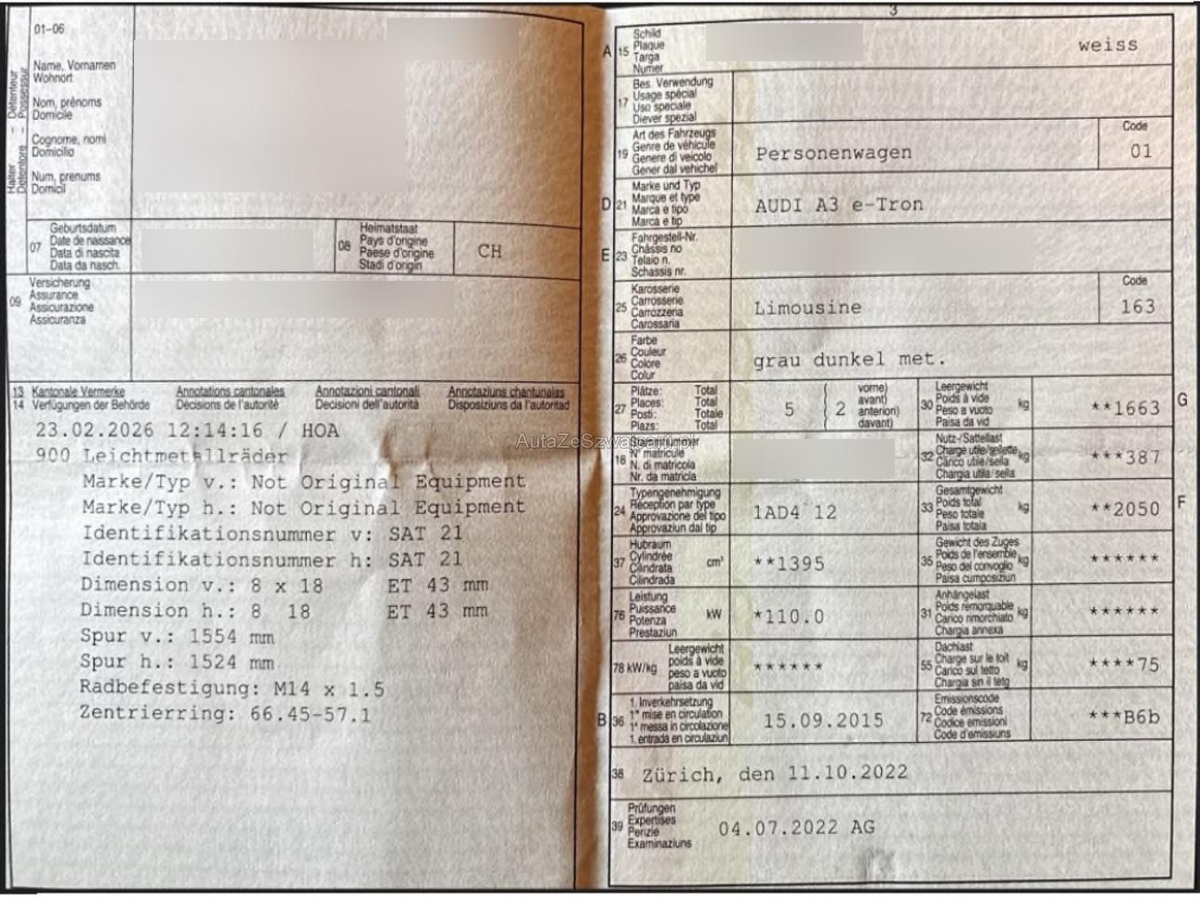 01-06
Halter - Détenteur
Detentore - Possessur
Name, Vornamen
Wohnort
Nom, prénoms
Domicile
Cognome, nomi
Domicilio
Num, prenums
Domicil
07
Geburtsdatum
Date de naissance
Data di nascita
Data da nasch.
08
Heimatstaat
Pays d'origine
Paese d'origine
Stadi d'origin
CH
09
Versicherung
Assurance
Assicurazione
Assicuranza
13 Kantonale Vermerke Annotations cantonales Annotazioni cantonali Annotaziuns chantunalas
14 Verfügungen der Behörde Décisions de l'autorité Decisioni dell'autorità Disposiziuns da l'autoritad
23.02.2026 12:14:16 / HOA
900 Leichtmetallräder
Marke/Typ v.: Not Original Equipment
Marke/Typ h.: Not Original Equipment
Identifikationsnummer v: SAT 21
Identifikationsnummer h: SAT 21
Dimension v.: 8 x 18 ET 43 mm
Dimension h.: 8 18 ET 43 mm
Spur v.: 1554 mm
Spur h.: 1524 mm
Radbefestigung: M14 x 1.5
Zentrierring: 66.45-57.1
3
A 15
Schild
Plaque
Targa
Numer
weiss
17
Bes. Verwendung
Usage spécial
Uso speciale
Diever spezial
19
Art des Fahrzeugs
Genre de véhicule
Genere di veicolo
Gener dal vehichel
Personenwagen
Code
01
D 21
Marke und Typ
Marque et type
Marca e tipo
Marca e tip
AUDI A3 e-Tron
E 23
Fahrgestell-Nr.
Châssis no
Telaio n.
Schassis nr.
25
Karosserie
Carrosserie
Carrozzeria
Carossaria
Limousine
Code
163
26
Farbe
Couleur
Colore
Colur
grau dunkel met.
27
Plätze: Total
Places: Total
Posti: Totale
Plazs: Total
5
2
vorne)
avant)
anteriori)
davant)
30
Leergewicht
Poids à vide
Peso a vuoto
Paisa da vid
kg
**1663
G
18
Stammnummer
N° matricule
N. di matricola
Nr. da matricla
32
Nutz-/Sattellast
Charge utile/sellette
Carico utile/sella
Chargia utila/sella
kg
***387
24
Typengenehmigung
Réception par type
Approvazione del tipo
Approvaziun dal tip
1AD4 12
33
Gesamtgewicht
Poids total
Peso totale
Paisa totala
kg
**2050
F
37
Hubraum
Cylindrée
Cilindrata
Cilindrada
cm³
**1395
35
Gewicht des Zuges
Poids de l'ensemble
Peso del convoglio
Paisa cumposiziun
kg
******
76
Leistung
Puissance
Potenza
Prestaziun
kW
*110.0
31
Anhängelast
Poids remorquable
Carico rimorchiato
Chargia annexa
kg
******
78 kW/kg
Leergewicht
poids à vide
peso a vuoto
paisa da vid
******
55
Dachlast
Charge sur le toit
Carico sul tetto
Chargia sin il tetg
kg
****75
B 36
1. Inverkehrsetzung
1re mise en circulation
1a messa in circolazione
1. entrada en circulaziun
15.09.2015
72
Emissionscode
Code émissions
Codice emissioni
Code d'emissiuns
***B6b
38
Zürich, den 11.10.2022
39
Prüfungen
Expertises
Perizie
Examinaziuns
04.07.2022 AG